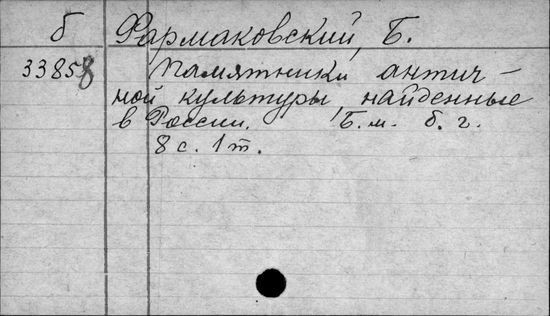 б Фармаковский, Б.
33858 Памятники антич-
ной культуры, найденные
в России. Б.м. б.г.
8 с. 1 т.